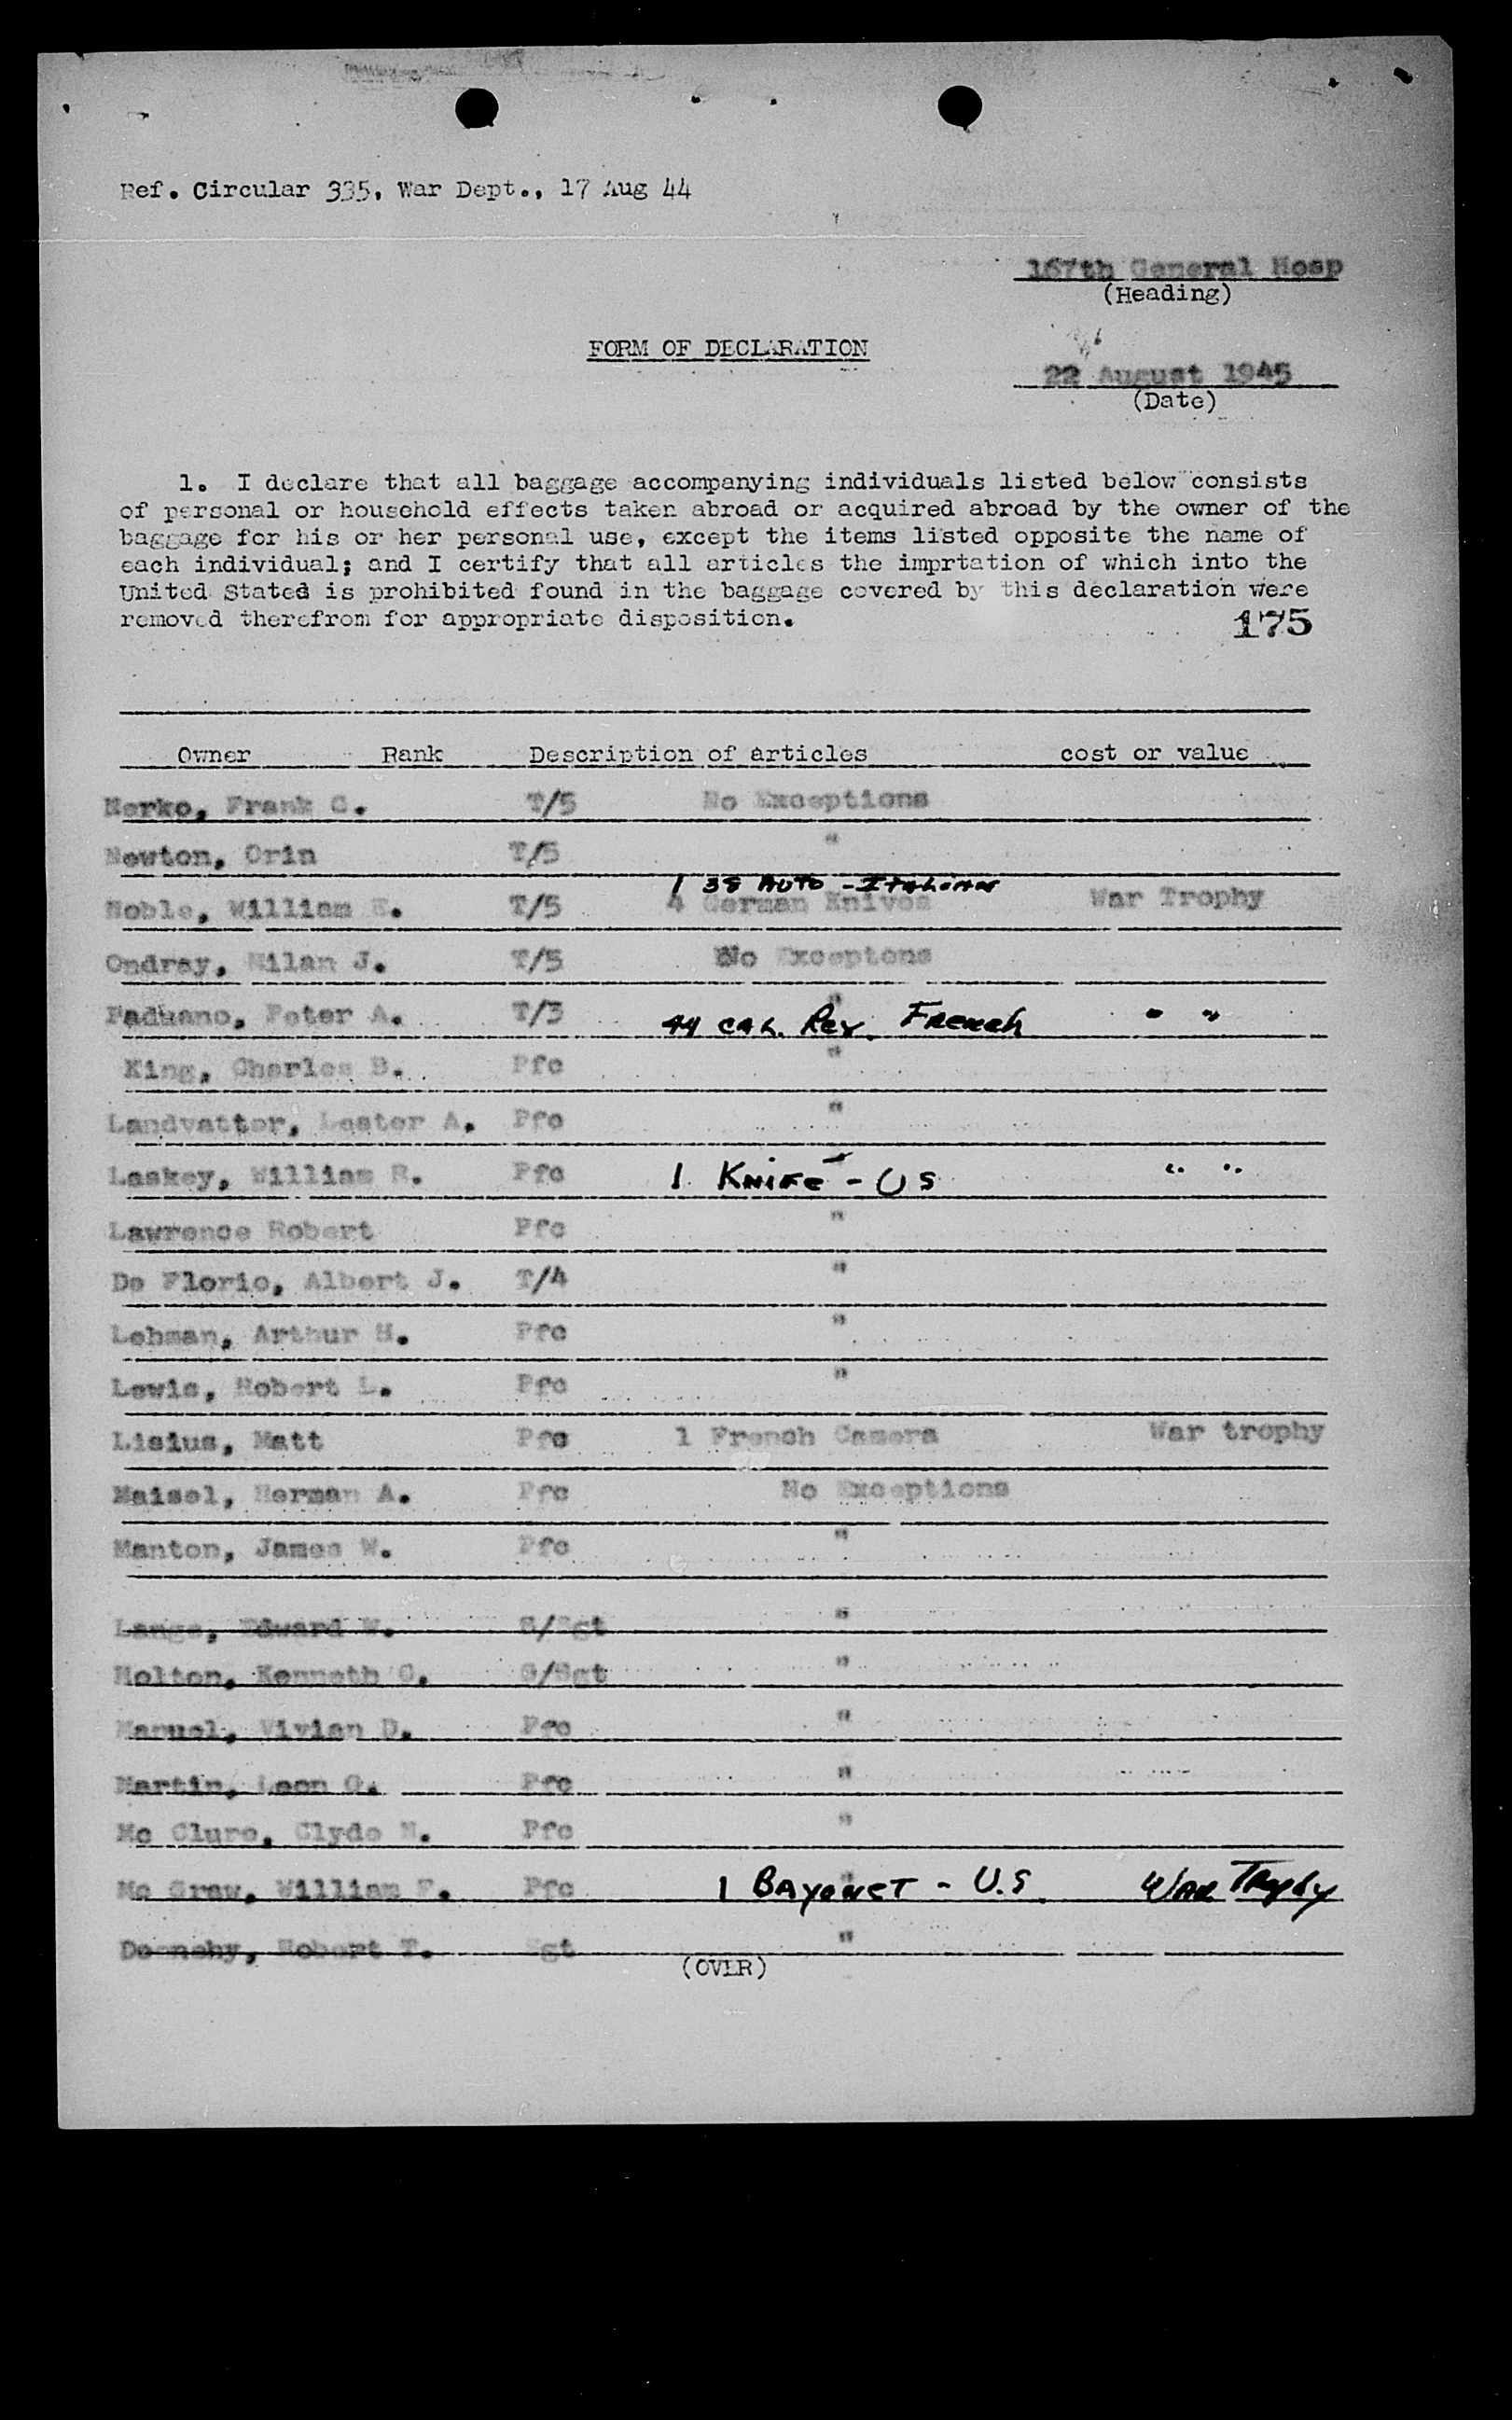 Ref. Circular 335, War Dept., 17 Aug 44
167th General Hosp
(Heading)
FORM OF DECLARATION
22 August 1945
(Date)
1. I declare that all baggage accompanying individuals listed below consists
of personal or household effects taken abroad or acquired abroad by the owner of the
baggage for his or her personal use, except the items listed opposite the name of
each individual; and I certify that all articles the imprtation of which into the
United Stated is prohibited found in the baggage covered by this declaration were
removed therefrom for appropriate disposition.
175
Owner Rank Description of articles cost or value
Nerko, Frank C. T/5 No Exceptions
Newton, Orin T/5 "
1 38 AUTO - Italian
Noble, William E. T/5 4 German Knives War Trophy
Ondray, Milan J. T/5 No Exceptons
Paduano, Peter A. T/3 " 44 CAL. Rev. French " "
King, Charles B. Pfc "
Landvatter, Lester A. Pfc "
Laskey, William R. Pfc 1 KNIFE - US " "
Lawrence Robert Pfc "
De Florio, Albert J. T/4 "
Lehman, Arthur H. Pfc "
Lewis, Robert L. Pfc "
Lisius, Matt Pfc 1 French Camera War trophy
Maisel, Herman A. Pfc No Exceptions
Manton, James W. Pfc "
Lange, Edward W. S/Sgt "
Molton, Kenneth C. S/Sgt "
Manuel, Vivian D. Pfc "
Martin, Leon O. Pfc "
Mc Clure, Clyde N. Pfc "
Mc Graw, William F. Pfc " 1 BAYONET - U.S. WAR Trophy
Robert T. Sgt "
(OVER)